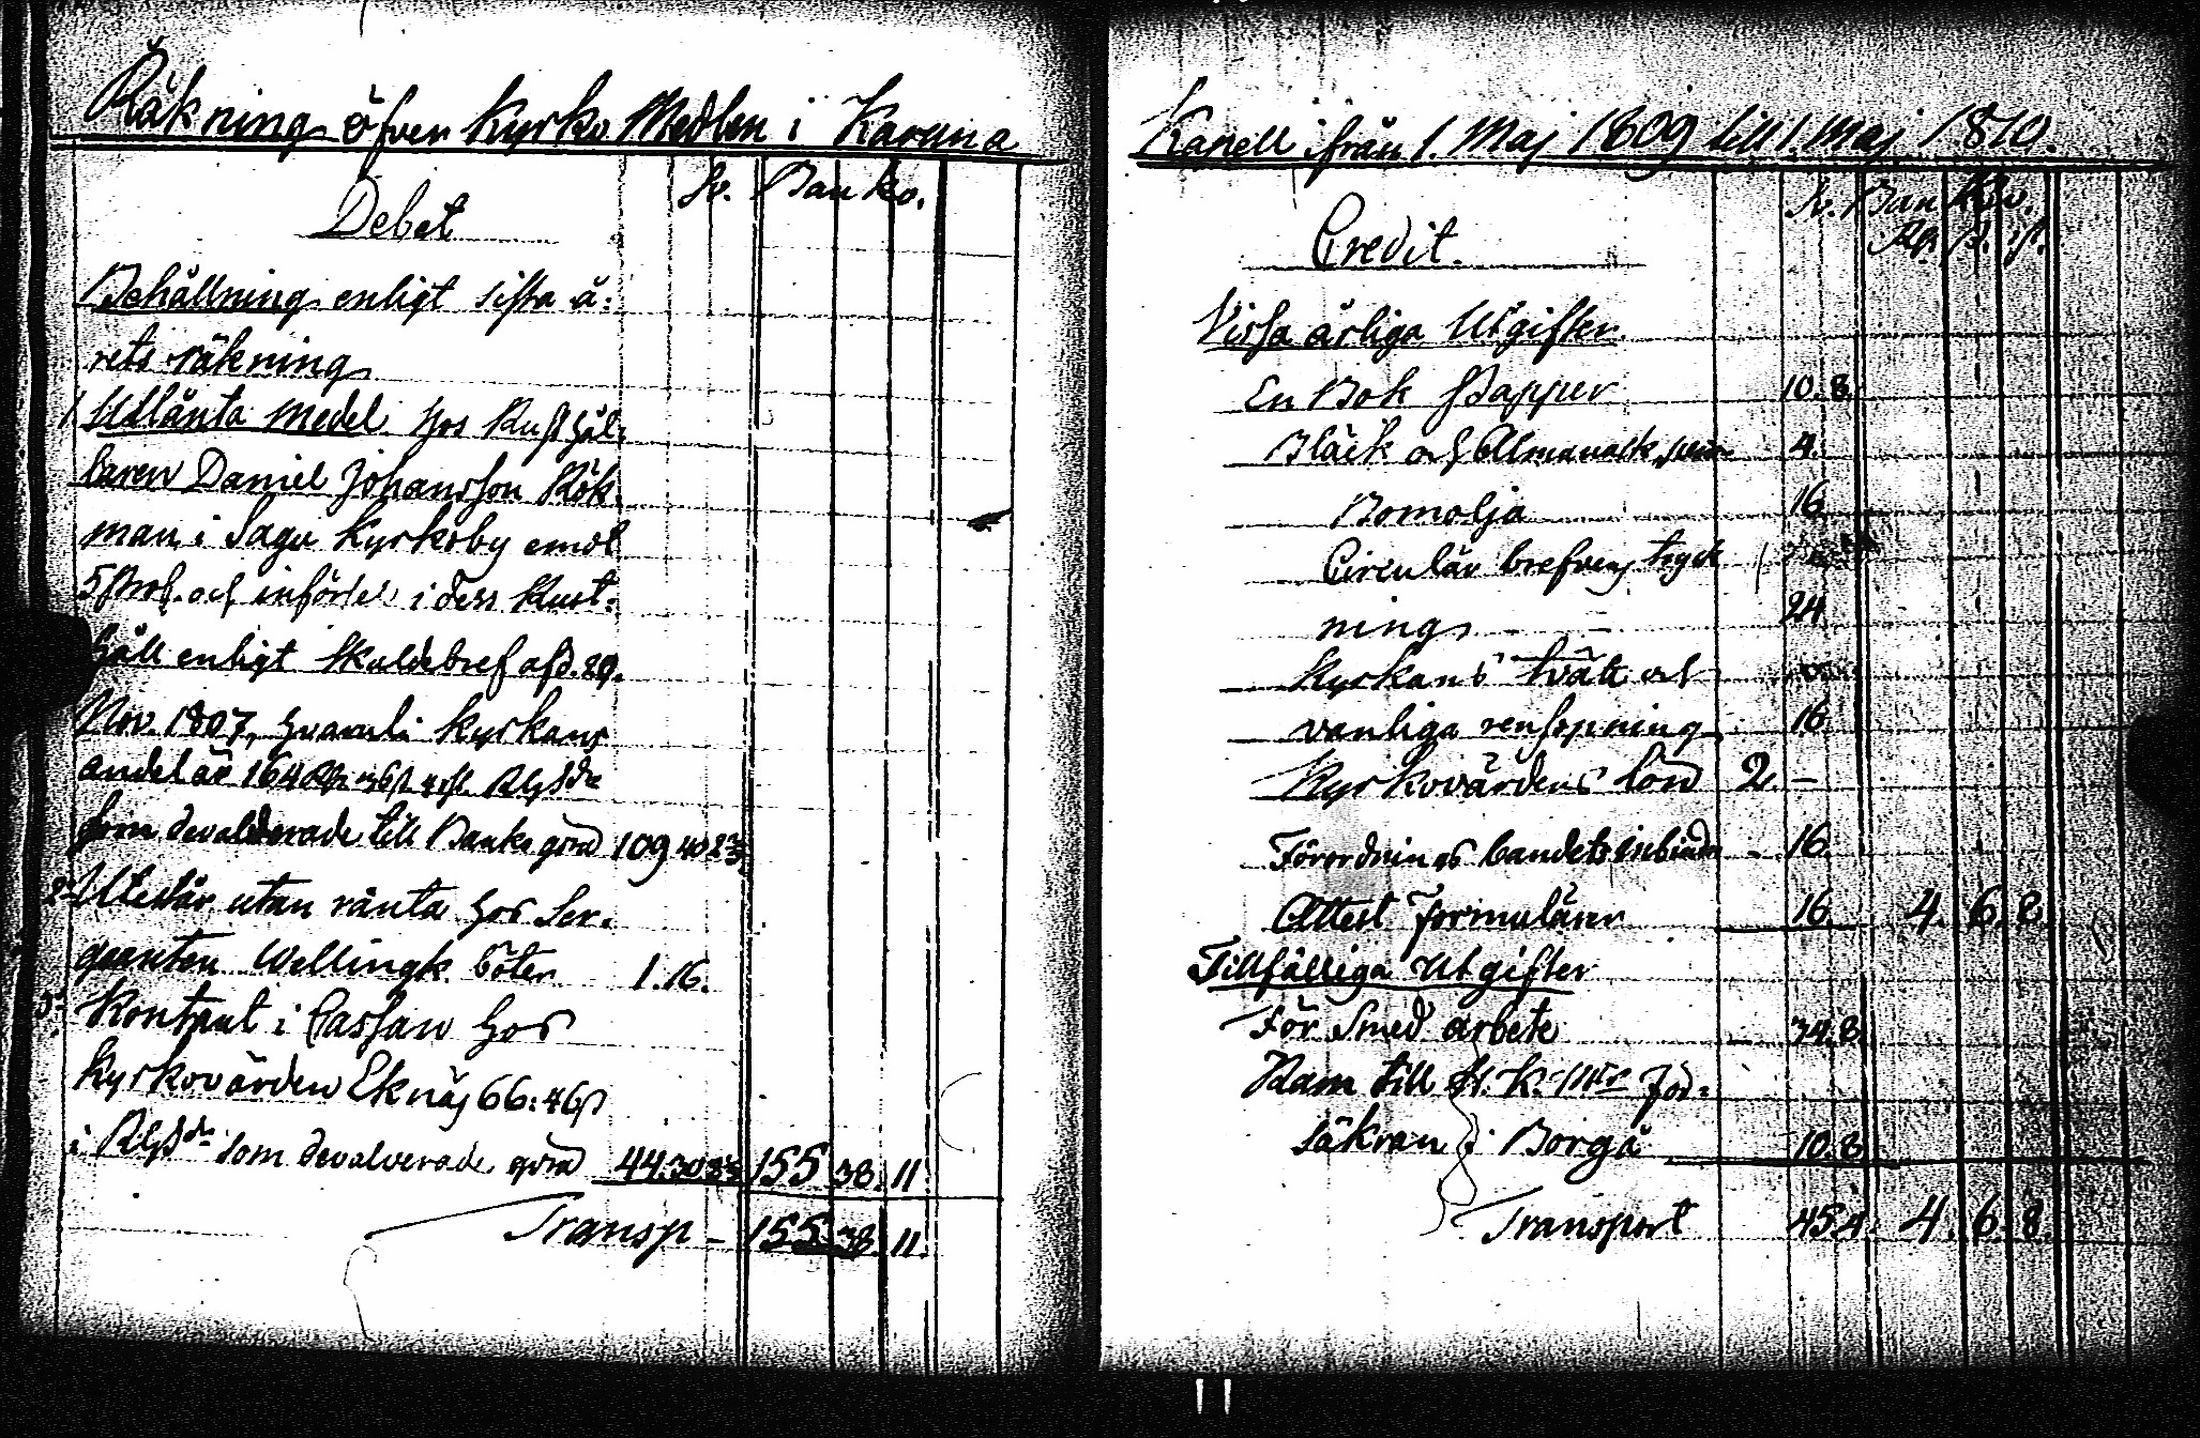 Räkning öfver Kyrko Medlen i Karuna
Sv. Banko.
Debet
Behållning enligt sista å:
rets räkning
1 Utlånta Medel hos Rusthål:
laren Daniel Johansson Rök:
man i Sagu Kyrkoby emot
5 Proc. och införtel i dess Rust:
håll enligt Skuldebref af d. 29.
Nov. 1807, hvaruti Kyrkans
andel är 164 Rdr 36 s 4 rst. Rgsdr
som devalverade till Banko göra 109 40 2⅔
2 Utestår utan ränta hos Ser:
geanten Wellingk böter 1.16.
3 Kontant i Cassan hos
Kyrkovärden Eknäs 66: 46 s
i Rgsdr som devalverade göra 44.30.8⅓ 155 38. 11
Transp – 155 38. 11.
Kapell ifrån 1. Maj 1809 till 1. Maj 1810.
Sv. Banko.
Credit. Rd. s. rst.
Vissa årliga Utgifter.
En Bok Papper 10.8.
Bläck och Allmanack 4.
Bomolja 16
Circulär brefvens tryck
ning 24
Kyrkans tvätt och
vanliga rensopning 16
Kyrkovärdens lön 2. –
Förordnings bandets inbindn – 16.
Attest Formulärer 16. 4. 6. 8.
Tillfälliga Utgifter
För Smed arbete 34.8
Ram till H. K. Mts För:
säkran i Borgå 10.8
Transport 45.4. 4. 6. 8.
11